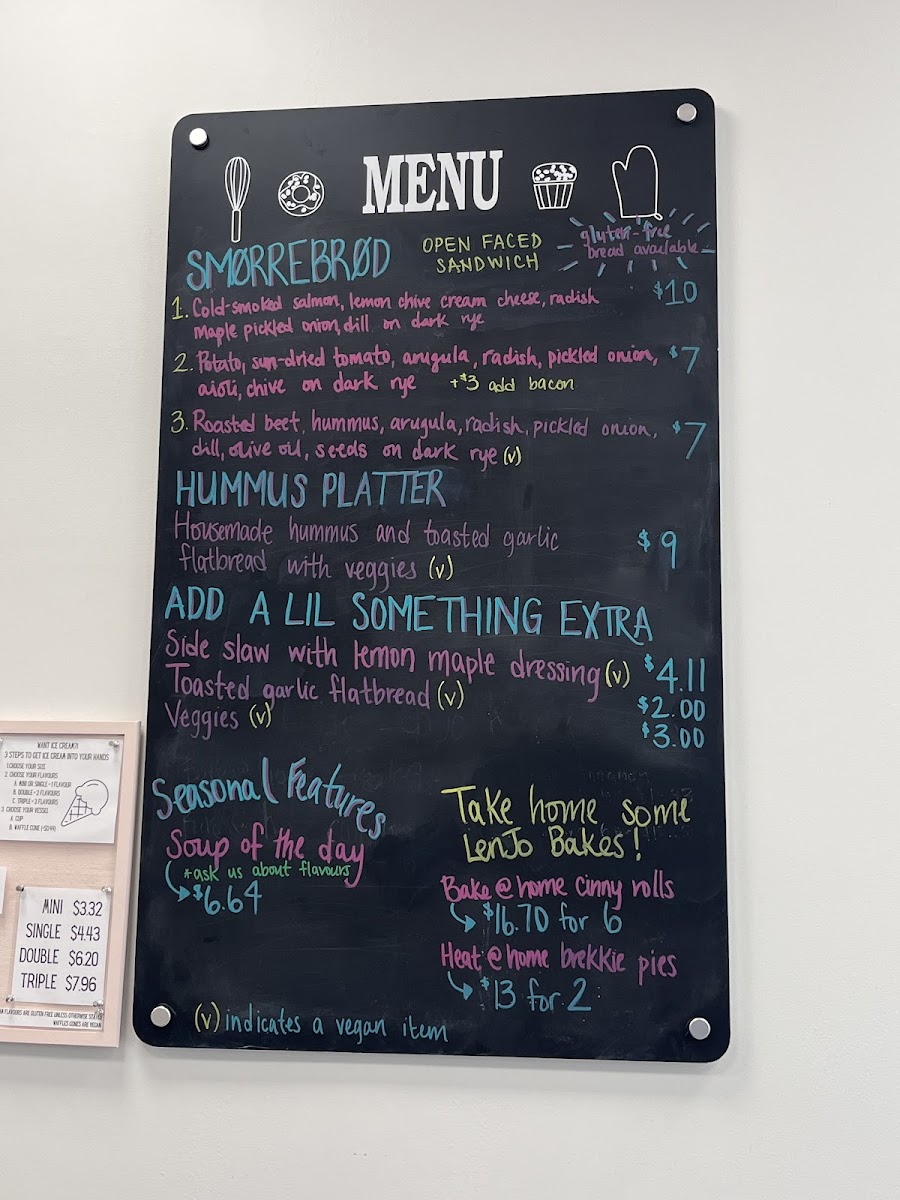 MENU
SMØRREBRØD
OPEN FACED
SANDWICH
gluten-free
bread available
1. Cold-smoked salmon, lemon chive cream cheese, radish
maple pickled onion, dill on dark rye
$10
2. Potato, sun-dried tomato, arugula, radish, pickled onion,
aioli, chive on dark rye +$3 add bacon
$7
3. Roasted beet, hummus, arugula, radish, pickled onion,
dill, olive oil, seeds on dark rye (v)
$7
HUMMUS PLATTER
Housemade hummus and toasted garlic
flatbread with veggies (v)
$9
ADD A LIL SOMETHING EXTRA
Side slaw with lemon maple dressing (v) $4.11
Toasted garlic flatbread (v) $2.00
Veggies (v) $3.00
Seasonal Features
Soup of the day
*ask us about flavours
$6.64
Take home some
LenJo Bakes!
Bake @ home cinny rolls
$16.70 for 6
Heat @ home brekkie pies
$13 for 2
(v) indicates a vegan item
WANT ICE CREAM?!
3 STEPS TO GET ICE CREAM INTO YOUR HANDS
1. CHOOSE YOUR SIZE
2. CHOOSE YOUR FLAVOURS
A. MINI OR SINGLE = 1 FLAVOUR
B. DOUBLE = 2 FLAVOURS
C. TRIPLE = 3 FLAVOURS
3. CHOOSE YOUR VESSEL
A. CUP
B. WAFFLE CONE
MINI $3.32
SINGLE $4.43
DOUBLE $6.20
TRIPLE $7.96
FLAVOURS ARE GLUTEN FREE UNLESS OTHERWISE
WAFFLES CONES ARE VEGAN